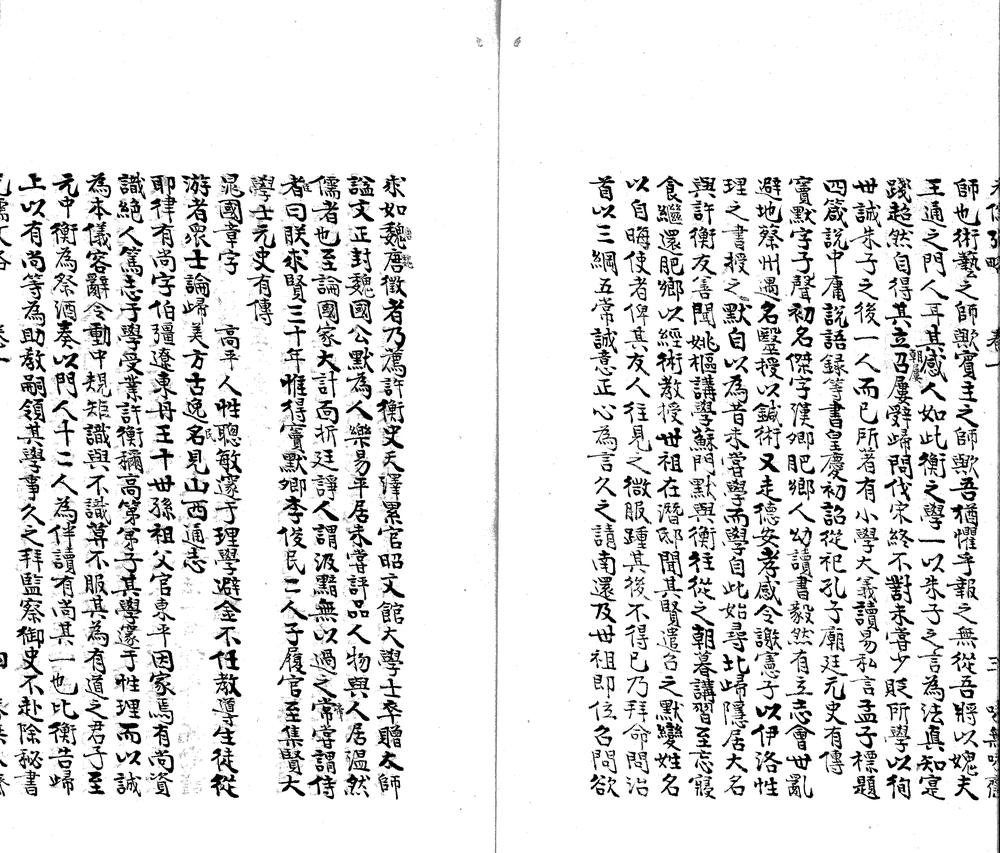 師也術藝之師歟賓主之師歟吾猶懼乎報之無從吾將以媿夫
王通之門人耳其感人如此衡之學一以朱子之言為法真知寔
踐超然自得其立朝屢召屢辤歸問伐宋終不對未嘗少貶所學以徇
世誠朱子之後一人而已所著有小學大義讀易私言孟子標題
四箴說中庸說語錄等書皇慶初詔從祀孔子廟廷元史有傳
竇默字子聲初名傑字漢卿肥鄉人幼讀書毅然有立志會世亂
避地蔡州遇名醫授以鍼術又走德安孝感令謝憲子以伊洛性
理之書授之默自以為昔未嘗學而學自此始尋北歸隱居大名
與許衡友善聞姚樞講學蘇門默與衡往從之朝暮講習至忘寢
食繼還肥鄉以經術教授世祖在潛邸聞其賢遣召之默變姓名
以自晦使者俾其友人往見之微服踵其後不得已乃拜命問治
首以三綱五常誠意正心為言久之請南還及世祖即位召問欲
求如魏唐徵者乃薦許衡史天澤累官昭文館大學士卒贈太師
謚文正封魏國公默為人樂易平居未嘗評品人物與人居溫然
儒者也至論國家大計面折廷諍人謂汲黯無以過之帝嘗謂侍
者曰朕求賢三十年惟得竇默卿李俊民二人子履官至集賢大
學士元史有傳
晁國章字　高平人性聰敏邃于理學避金不仕教導生徒從
游者眾士論歸美方古逸民名見山西通志
耶律有尚字伯彊遼東丹王十世孫祖父官東平因家焉有尚資
識絕人篤志于學受業許衡稱高第弟子其學邃于性理而以誠
為本儀容辭令動中規矩識與不識莫不服其為有道之君子至
元中衡為祭酒奏以門人十二人為伴讀有尚其一也比衡告歸
上以有尚等為助教嗣領其學事久之拜監察御史不赴除秘書